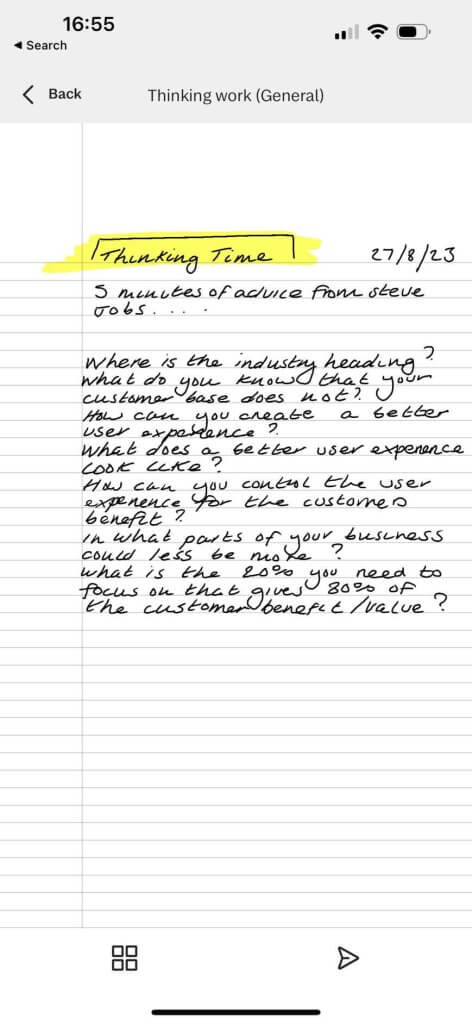 16:55
Search
Back
Thinking work (General)
Thinking Time
27/8/23
5 minutes of advice from steve
Jobs. . . .
Where is the industry heading?
what do you know that your
customer base does not?
How can you create a better
user experience?
What does a better user experience
look like?
How can you control the user
experience for the customers
benefit?
in what parts of your business
could less be more?
what is the 20% you need to
focus on that gives 80% of
the customer benefit/value?